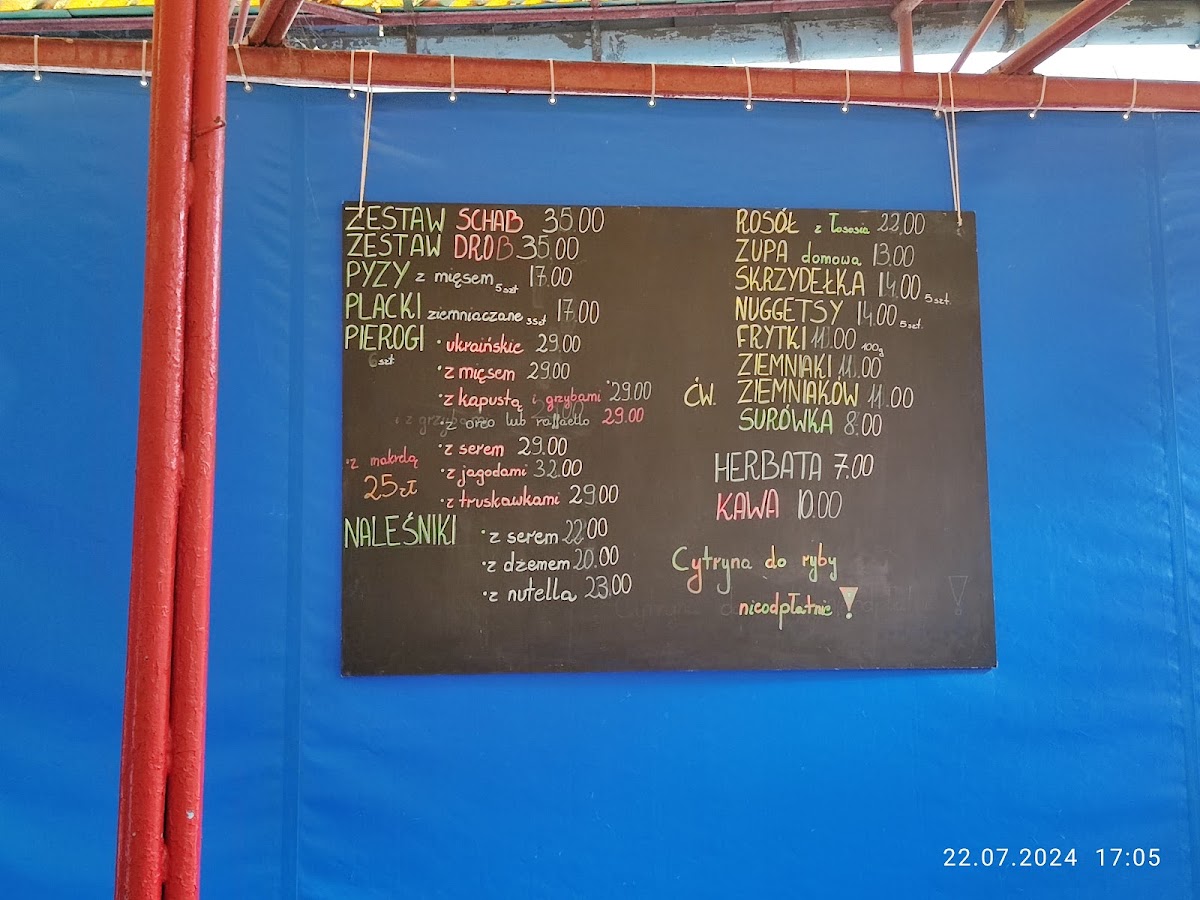 ZESTAW SCHAB 35.00
ZESTAW DROB 35.00
PYZY z mięsem 5szt 17.00
PLACKI ziemniaczane 3szt 17.00
PIEROGI · ukraińskie 29.00
6szt
· z mięsem 29.00
· z kapustą i grzybami 29.00
· z oreo lub raffaello 29.00
· z serem 29.00
· z makrelą
25 zł
· z jagodami 32.00
· z truskawkami 29.00
NALEŚNIKI · z serem 22.00
· z dżemem 20.00
· z nutella 23.00
ROSÓŁ z łososia 22,00
ZUPA domowa 13.00
SKRZYDEŁKA 14.00 5szt.
NUGGETSY 14.00 5szt.
FRYTKI 11.00 100g
ZIEMNIAKI 11.00
ĆW. ZIEMNIAKÓW 11.00
SURÓWKA 8.00
HERBATA 7.00
KAWA 10.00
Cytryna do ryby
nieodpłatnie !
22.07.2024 17:05